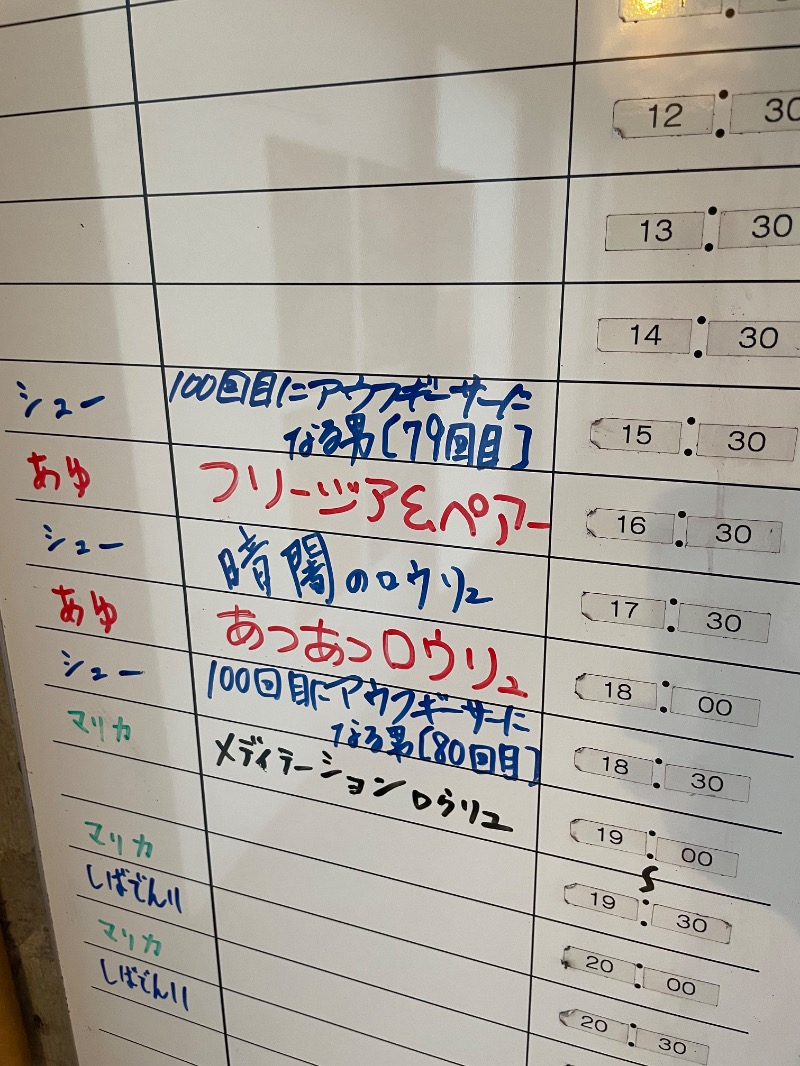 12:30
13:30
14:30
シュー 100回目にアウフギーサーに
なる男[79回目] 15:30
あゆ フリージア&ペアー 16:30
シュー 暗闇のロウリュ 17:30
あゆ あつあつロウリュ 18:00
シュー 100回目にアウフギーサーに
なる男[80回目] 18:30
マリカ メディテーションロウリュ 19:00
〜
19:30
マリカ 20:00
しばでんリ 20:30
マリカ
しばでんリ